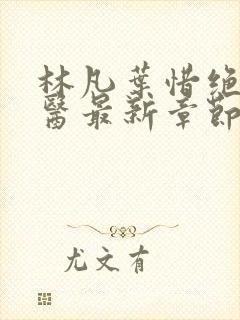 林凡葉惜绝
醫最新章節
尤文有